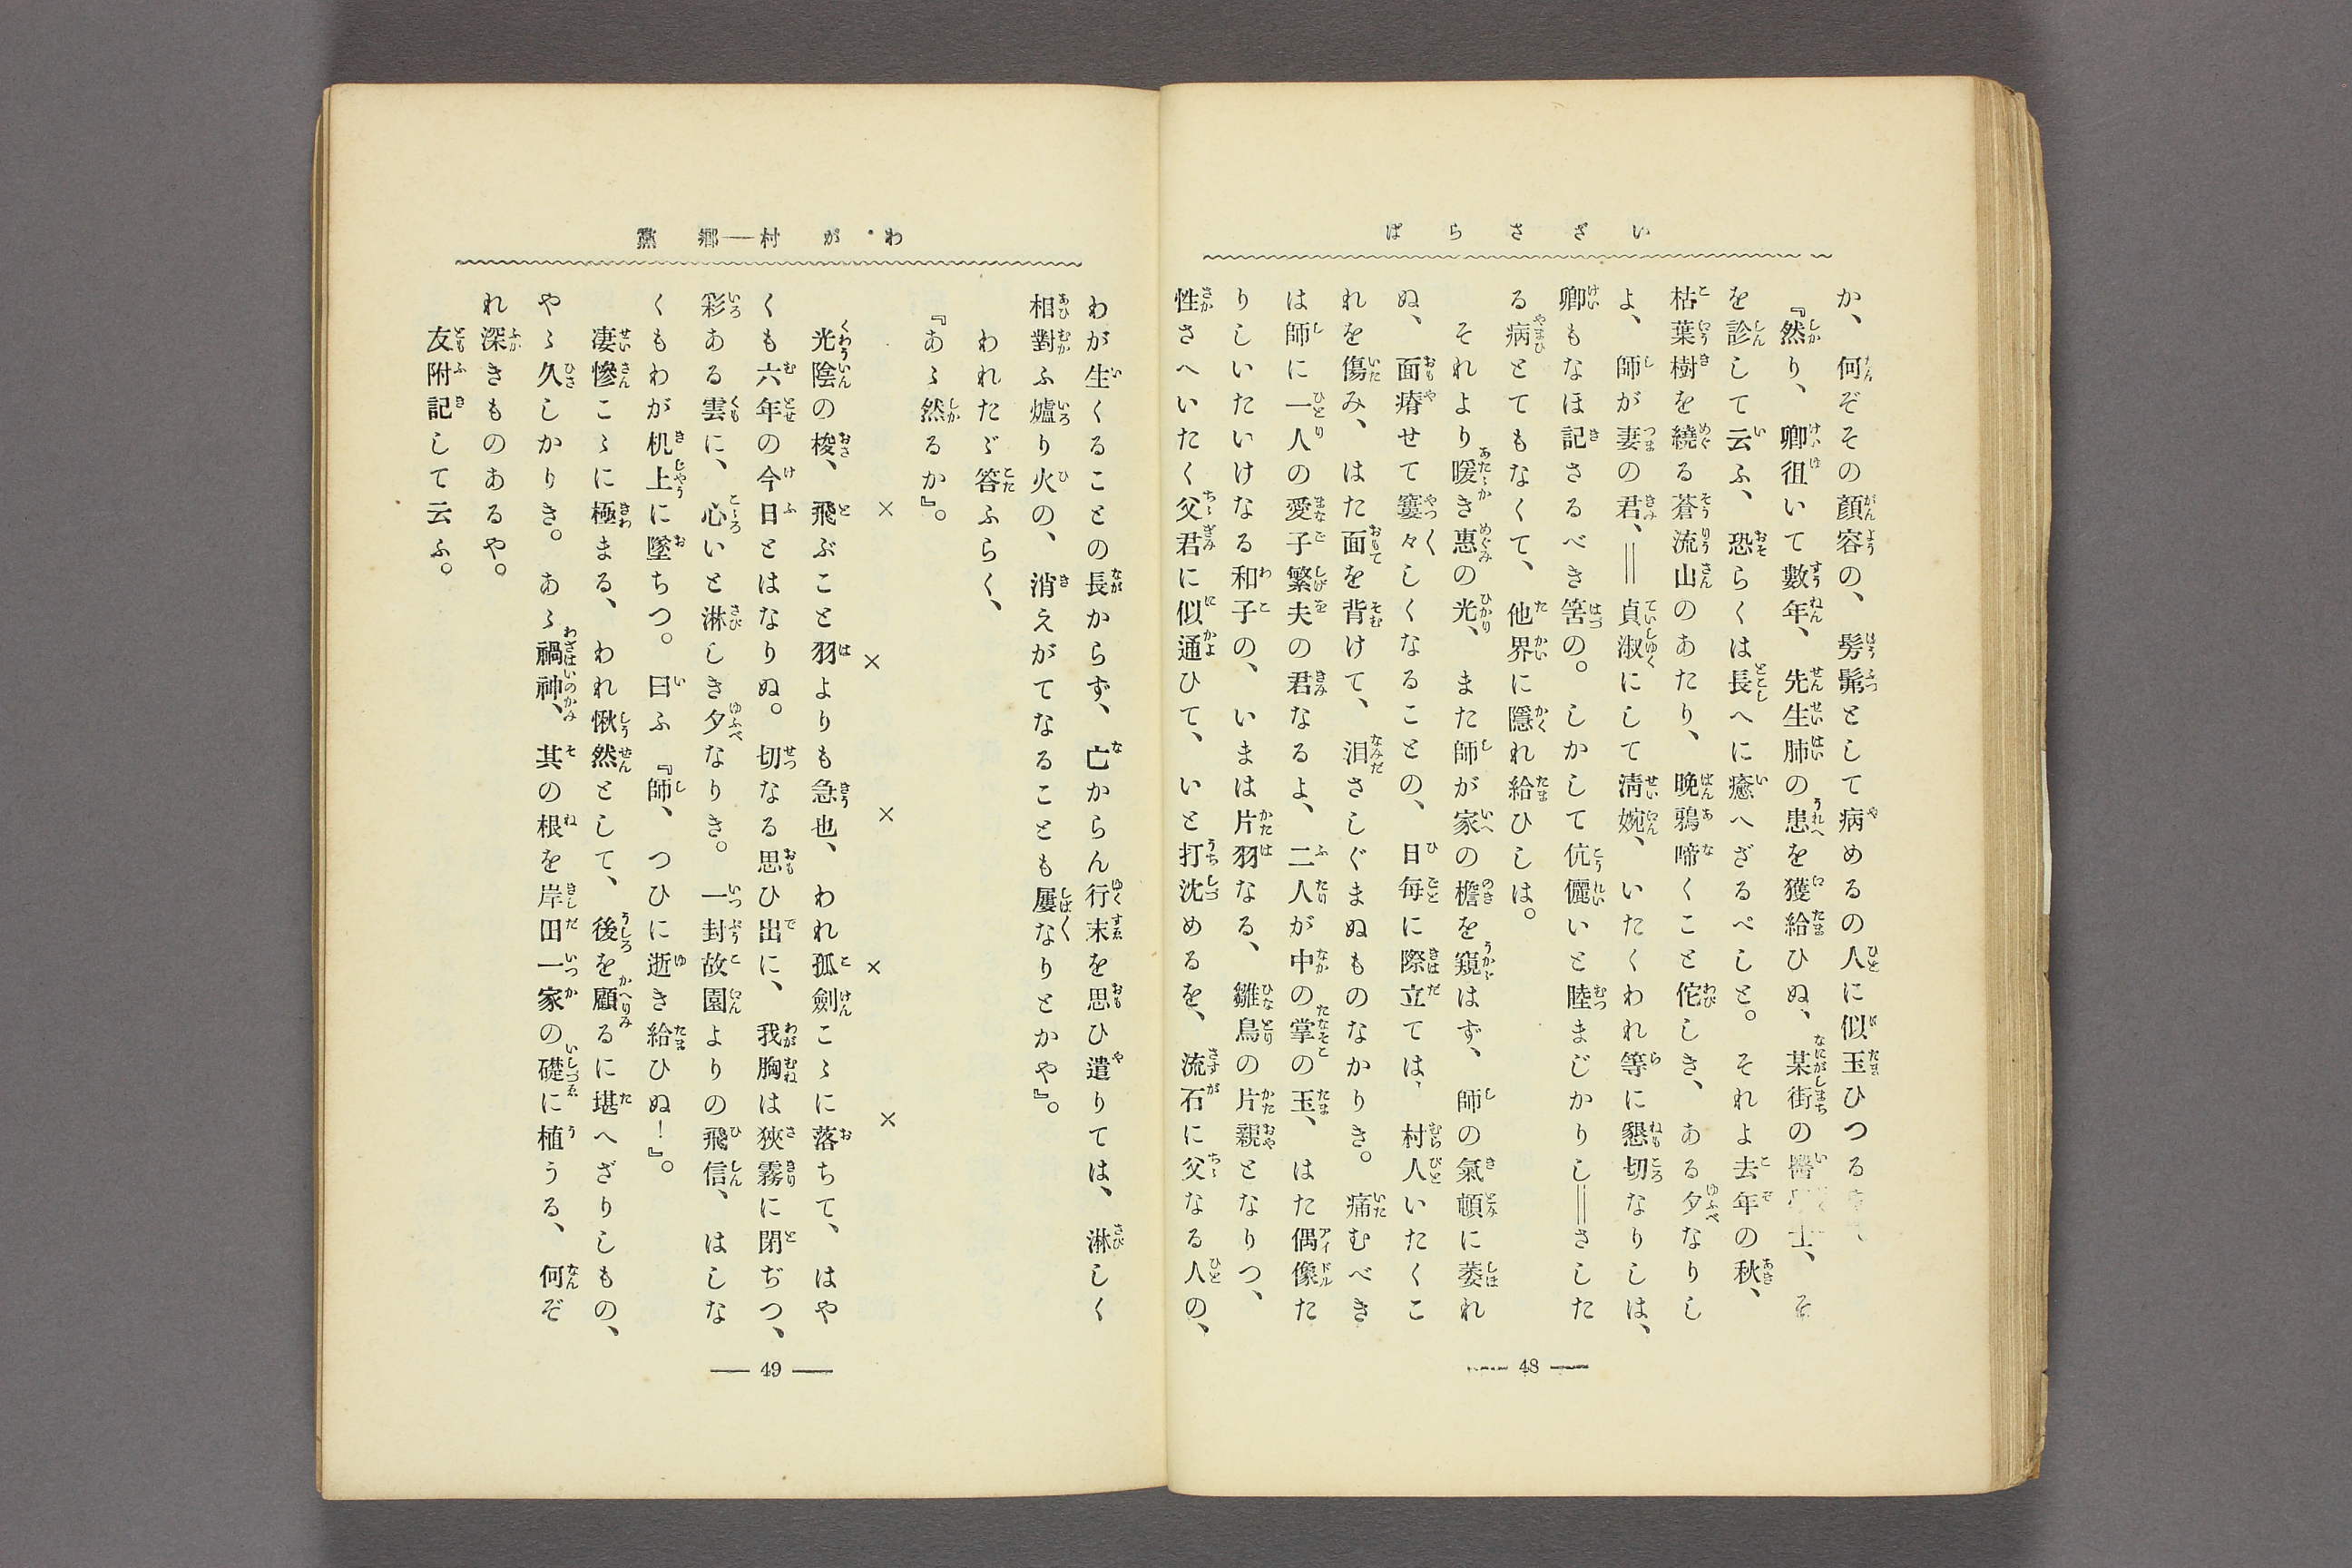 いざさらば
か、何ぞその顏容の、髣髴として病めるの人に似玉ひつる
『然り、卿徂いて數年、先生肺の患を獲給ひぬ、某街の醫士、そ
を診して云ふ、恐らくは長へに癒へざるべしと。それよ去年の秋、
枯葉樹を繞る蒼流山のあたり、晩鴉啼くこと佗しき、ある夕なりし
よ、師が妻の君、‖貞淑にして淸婉、いたくわれ等に懇切なりしは、
卿もなほ記さるべき筈の。しかして伉儷いと睦まじかりし‖さした
る病とてもなくて、他界に隱れ給ひしは。
それより暖き惠の光、また師が家の檐を窺はず、師の氣頓に萎れ
ぬ、面瘠せて窶々しくなることの、日毎に際立ては、村人いたくこ
れを傷み、はた面を背けて、泪さしぐまぬものなかりき。痛むべき
は師に一人の愛子繁夫の君なるよ、二人が中の掌の玉、はた偶像た
りしいたいけなる和子の、いまは片羽なる、雛鳥の片親となりつ、
性さへいたく父君に似通ひて、いと打沈めるを、流石に父なる人の、
— 48 —
わが村—鄕黨
わが生くることの長からず、亡からん行末を思ひ遣りては、淋しく
相對ふ爐り火の、消えがてなることも屢なりとかや』。
われたゞ答ふらく、
『あゝ然るか』。
× × × × ×
光陰の梭、飛ぶこと羽よりも急也、われ孤劍こゝに落ちて、はや
くも六年の今日とはなりぬ。切なる思ひ出に、我胸は狹霧に閉ぢつ、
彩ある雲に、心いと淋しき夕なりき。一封故園よりの飛信、はしな
くもわが机上に墜ちつ。曰ふ『師、つひに逝き給ひぬ！』。
凄慘こゝに極まる、われ愀然として、後を顧るに堪へざりしもの、
やゝ久しかりき。あゝ禍神、其の根を岸田一家の礎に植うる、何ぞ
れ深きものあるや。
友附記して云ふ。
— 49 —